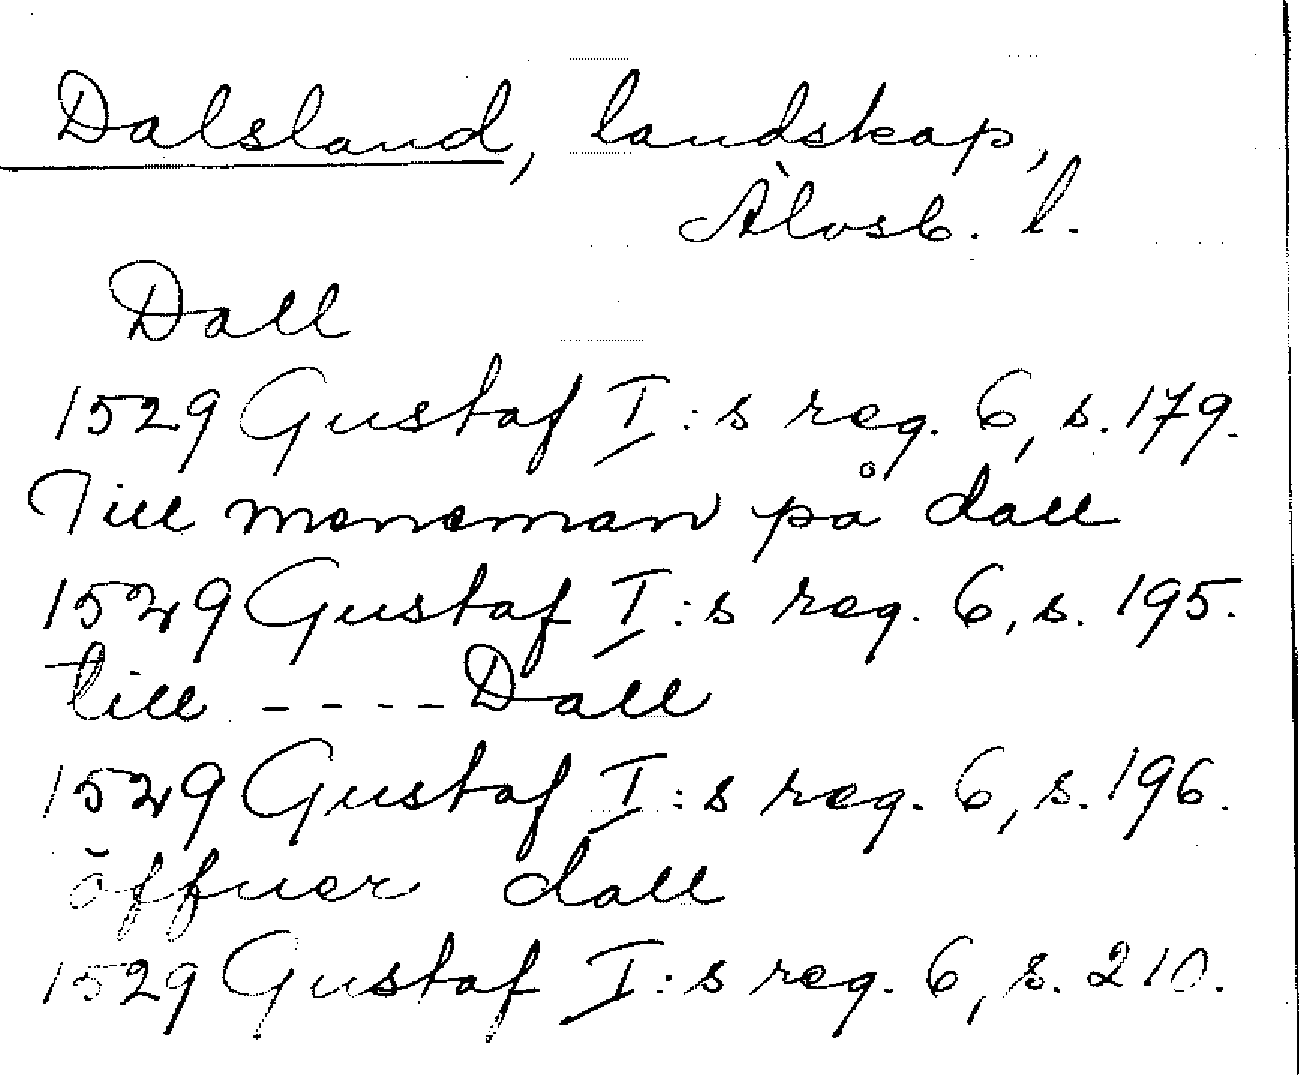 Dalsland, landskap,
Älvsb. l.
Dall
1529 Gustaf I:s reg. 6, s. 179.
Till meneman på dall
1529 Gustaf I:s reg. 6, s. 195.
till ---- Dall
1529 Gustaf I:s reg. 6, s. 196.
öffuer dall
1529 Gustaf I:s reg. 6, s. 210.